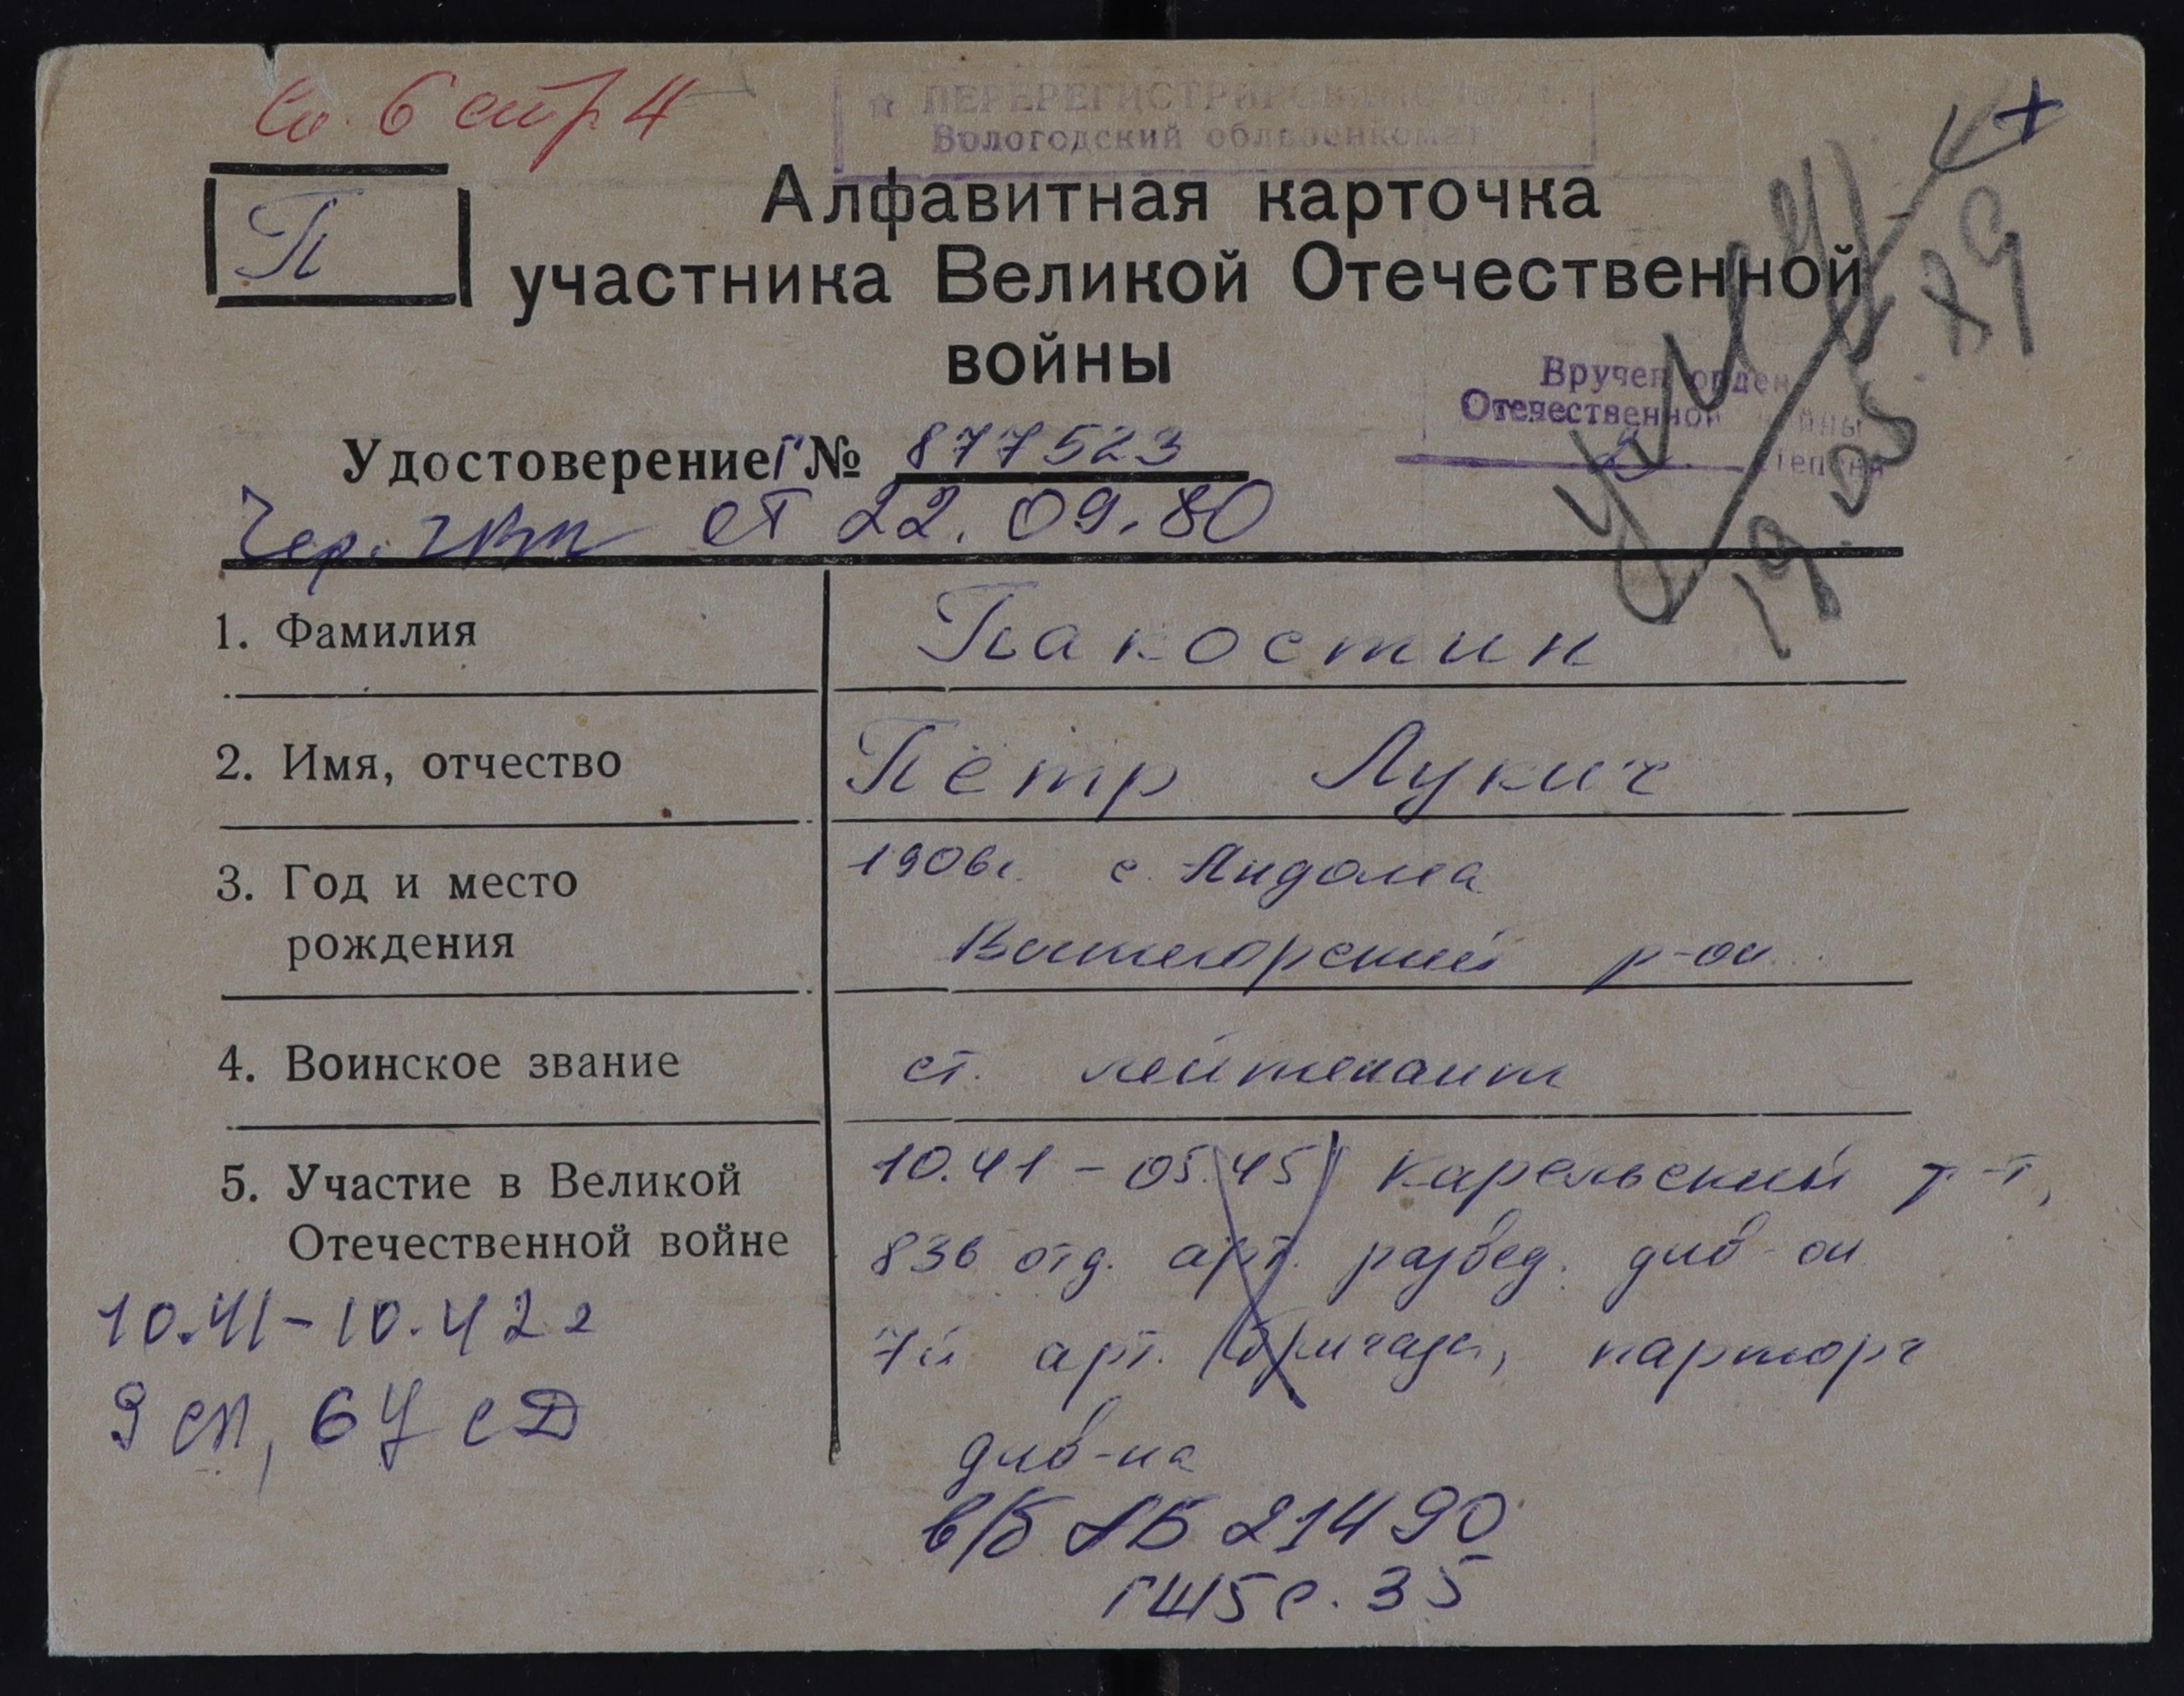 Сп. 6 стр 4
ПЕРЕРЕГИСТРИРОВАНО
Вологодский облвоенкомат
+
П
Алфавитная карточка
участника Великой Отечественной
войны
Вручен орден
Отечественной войны
2 степени
умер
19.05.89
Удостоверение Г № 877523
Чер. ГВК от 22.09.80
1. Фамилия Пакостин
2. Имя, отчество Пётр Лукич
3. Год и место 1906г. с. Андома
рождения Вытегорский р-он.
4. Воинское звание ст. лейтенант
5. Участие в Великой 10.41 - 05.45 Карельский ф-т,
Отечественной войне 836 отд. арт. развед. див-он
10.41-10.42г 7й арт. бригады, парторг
9 сп, 67 сД див-на
в/б АБ 21490
ГШ5 с. 35